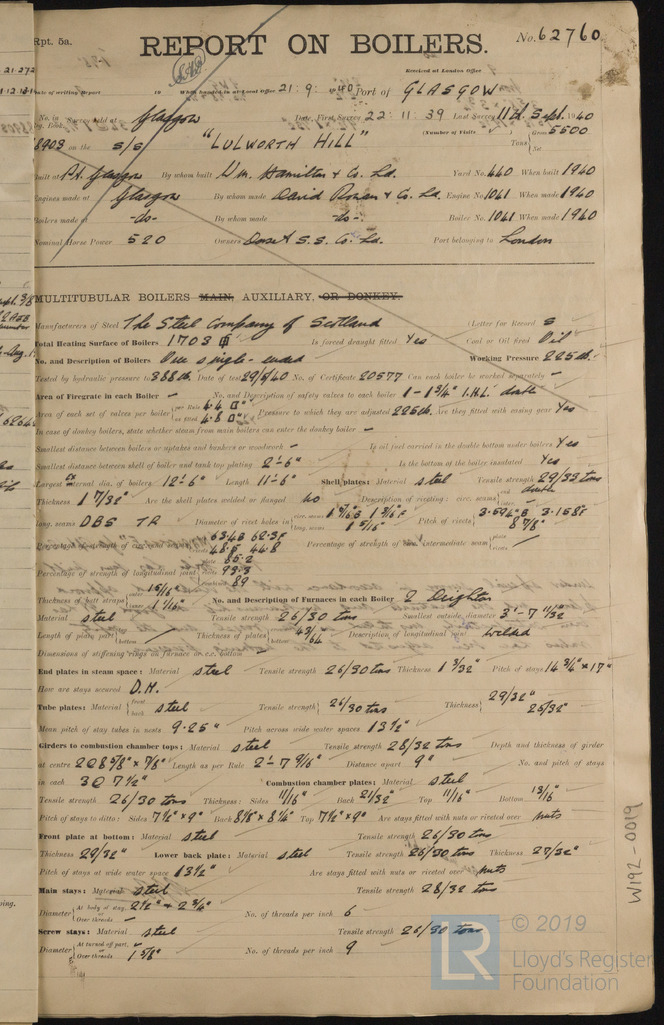 Rpt. 5a.
REPORT ON BOILERS.
No. 62760
Received at London Office
Date of writing Report 19 When handed in at Local Office 21 . 9 . 1940 Port of GLASGOW
No. in Survey held at Glasgow Date, First Survey 22 . 11 . 39 Last Survey 11th Sept. 1940
Reg. Book.
on the S/S "LULWORTH HILL" (Number of Visits ) Tons Gross 5500 Net
Built at Pt. Glasgow By whom built Wm. Hamilton & Co. Ld. Yard No. 440 When built 1940
Engines made at Glasgow By whom made David Rowan & Co. Ld. Engine No. 1041 When made 1940
Boilers made at -do- By whom made -do- Boiler No. 1041 When made 1940
Nominal Horse Power 520 Owners Dorset S.S. Co. Ld. Port belonging to London
MULTITUBULAR BOILERS MAIN, AUXILIARY, OR DONKEY.
Manufacturers of Steel The Steel Company of Scotland (Letter for Record S
Total Heating Surface of Boilers 1703 Is forced draught fitted Yes Coal or Oil fired Oil
No. and Description of Boilers One single-ended Working Pressure 225 lb.
Tested by hydraulic pressure to 388 lb. Date of test 29/5/40 No. of Certificate 20577 Can each boiler be worked separately -
Area of Firegrate in each Boiler - No. and Description of safety valves to each boiler 1 - 1 3/4" I.H.L.
Area of each set of valves per boiler per Rule 4.4 □" as fitted 4.8 □" Pressure to which they are adjusted 225 lb. Are they fitted with easing gear Yes
In case of donkey boilers, state whether steam from main boilers can enter the donkey boiler -
Smallest distance between boilers or uptakes and bunkers or woodwork - Is oil fuel carried in the double bottom under boilers Yes
Smallest distance between shell of boiler and tank top plating 2'-6" Is the bottom of the boiler insulated Yes
Largest internal dia. of boilers 12'-6" Length 11'-6" Shell plates: Material steel Tensile strength 29/33 tons
Thickness 1 7/32" Are the shell plates welded or flanged no Description of riveting: circ. seams end double inter. -
long. seams DBS TR Diameter of rivet holes in circ. seams long. seams 1 5/16" Pitch of rivets 3.594"B 3.158F 8 7/8"
Percentage of strength of circ. intermediate seam plate rivets
Percentage of strength of longitudinal joint plate 85.2 rivets 93.3 combined 89
Thickness of butt straps outer 15/16" inner 1 1/16" No. and Description of Furnaces in each Boiler 2 Deighton
Material steel Tensile strength 26/30 tons Smallest outside diameter 3'-7 11/32"
Length of plain part top bottom Thickness of plates 43/64" Description of longitudinal joint welded
Dimensions of stiffening rings on furnace or c.c. bottom
End plates in steam space: Material steel Tensile strength 26/30 tons Thickness 1 3/32" Pitch of stays 14 3/4" x 17"
How are stays secured D.N.
Tube plates: Material front back steel Tensile strength 26/30 tons Thickness 29/32" 25/32"
Mean pitch of stay tubes in nests 9.25" Pitch across wide water spaces 13 1/2"
Girders to combustion chamber tops: Material steel Tensile strength 28/32 tons Depth and thickness of girder
at centre 2@8 5/8" x 7/8" Length as per Rule 2'-7 9/16" Distance apart 9" No. and pitch of stays
in each 3@ 7 1/2" Combustion chamber plates: Material steel
Tensile strength 26/30 tons Thickness: Sides 11/16" Back 21/32" Top 11/16" Bottom 13/16"
Pitch of stays to ditto: Sides 7 1/2" x 9" Back 8 1/8" x 8 1/4" Top 7 1/2" x 9" Are stays fitted with nuts or riveted over nuts
Front plate at bottom: Material steel Tensile strength 26/30 tons
Thickness 29/32" Lower back plate: Material steel Tensile strength 26/30 tons Thickness 27/32"
Pitch of stays at wide water space 13 1/2" Are stays fitted with nuts or riveted over nuts
Main stays: Material steel Tensile strength 28/32 tons
Diameter At body of stay, 2 1/2" & 2 3/4" Over threads - No. of threads per inch 6
Screw stays: Material steel Tensile strength 26/30 tons
Diameter At turned off part, Over threads 1 5/8" No. of threads per inch 9
W192-0019
© 2019
LR Lloyd's Register
Foundation